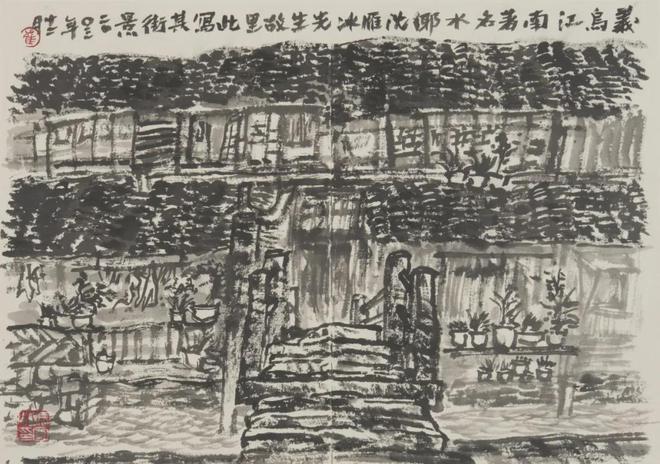 義烏江南著名水鄉沈雁冰先生故里此寫其街景
年
崔